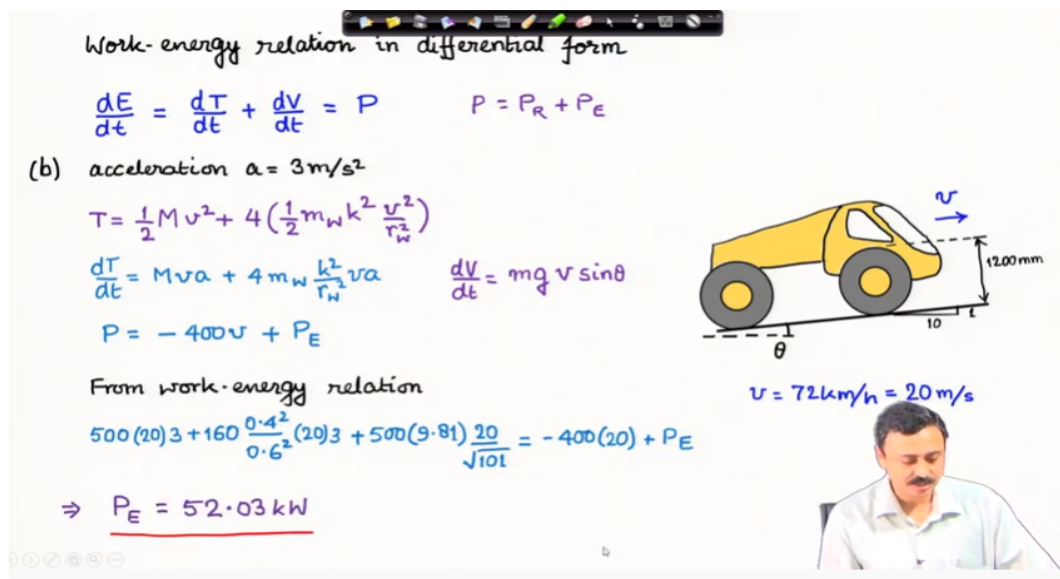 Work-energy relation in differential form
dE/dt = dT/dt + dV/dt = P
P = P_R + P_E
(b) acceleration a = 3m/s²
T = 1/2 M v² + 4(1/2 m_w k² v²/r_w²)
dT/dt = Mva + 4 m_w k²/r_w² va
dV/dt = mg v sinθ
P = - 400v + P_E
From work-energy relation
500(20)3 + 160 0.4²/0.6² (20)3 + 500(9.81) 20/√101 = -400(20) + P_E
⇒ P_E = 52.03 kW
v
1200mm
10
1
θ
v = 72km/h = 20 m/s